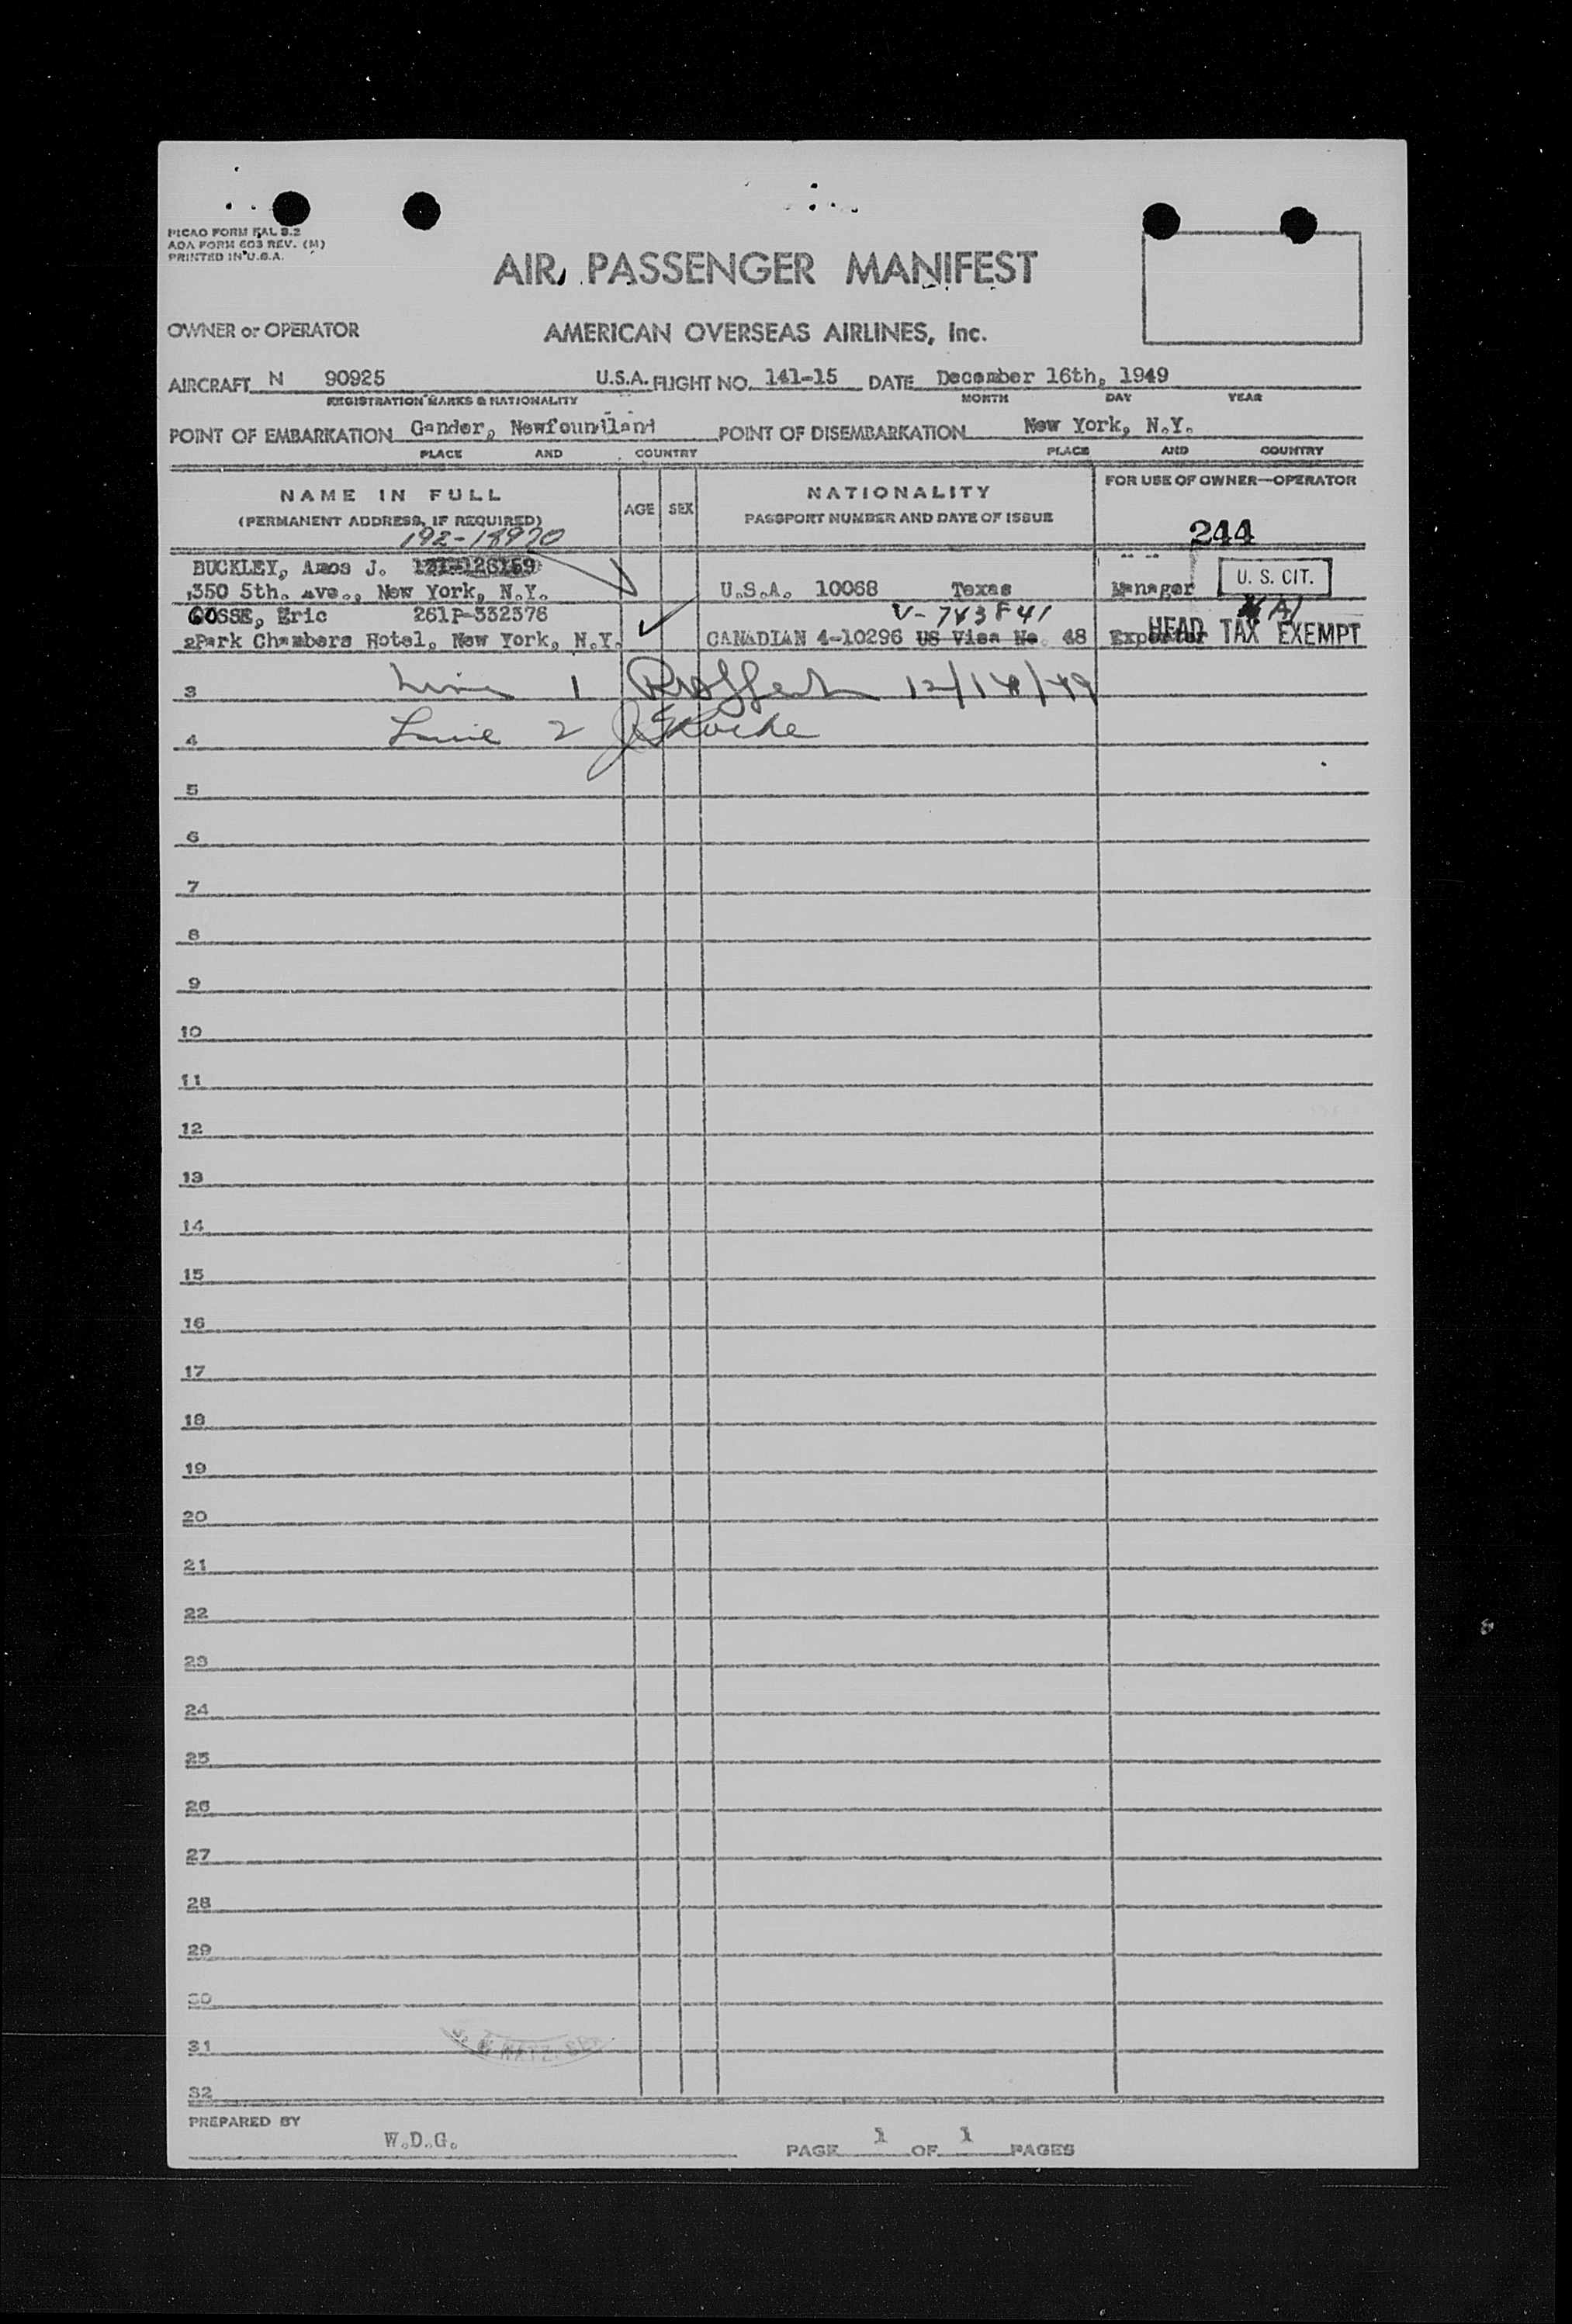 PICAO FORM FAL 8.2
AOA FORM 603 REV. (M)
PRINTED IN U.S.A.
AIR PASSENGER MANIFEST
OWNER or OPERATOR AMERICAN OVERSEAS AIRLINES, Inc.
AIRCRAFT N 90925 U.S.A. FLIGHT NO. 141-15 DATE December 16th, 1949
REGISTRATION MARKS & NATIONALITY MONTH DAY YEAR
POINT OF EMBARKATION Gander, Newfoundland POINT OF DISEMBARKATION New York, N.Y.
PLACE AND COUNTRY PLACE AND COUNTRY
NAME IN FULL AGE SEX NATIONALITY FOR USE OF OWNER—OPERATOR
(PERMANENT ADDRESS, IF REQUIRED) PASSPORT NUMBER AND DATE OF ISSUE
192-18970 244
BUCKLEY, Amos J.
1 350 5th. Ave., New York, N.Y. U.S.A. 10068 Texas Manager U. S. CIT.
GOSSE, Eric 261P-332576 V-743F41
2 Park Chambers Hotel, New York, N.Y. CANADIAN 4-10296 US Visa No. 48 Exporter HEAD TAX EXEMPT
3 Line 1
4 Line 2
5
6
7
8
9
10
11
12
13
14
15
16
17
18
19
20
21
22
23
24
25
26
27
28
29
30
31
32
PREPARED BY W.D.G. PAGE 1 OF 1 PAGES